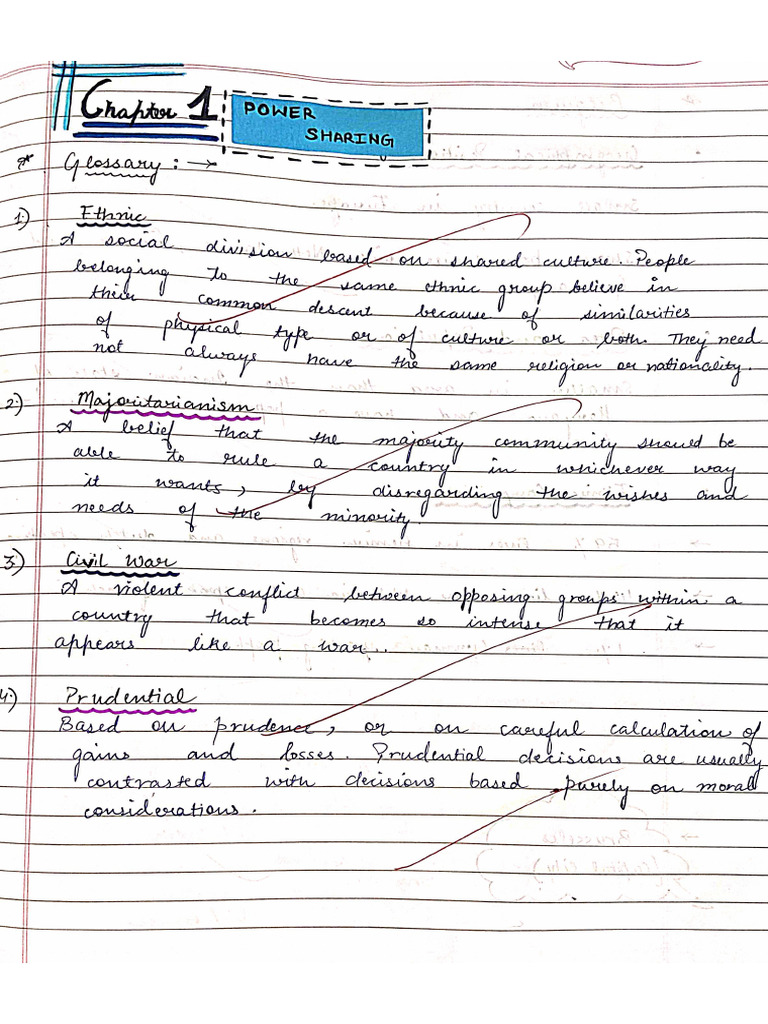 Chapter 1 POWER
SHARING
* Glossary : →
1.) Ethnic
A social division based on shared culture. People
belonging to the same ethnic group believe in
their common descent because of similarities
of physical type or of culture or both. They need
not always have the same religion or nationality.
2.) Majoritarianism
A belief that the majority community should be
able to rule a country in whichever way
it wants, by disregarding the wishes and
needs of the minority.
3.) Civil War
A violent conflict between opposing groups within a
country that becomes so intense that it
appears like a war..
4.) Prudential
Based on prudence, or on careful calculation of
gains and losses. Prudential decisions are usually
contrasted with decisions based purely on moral
considerations.